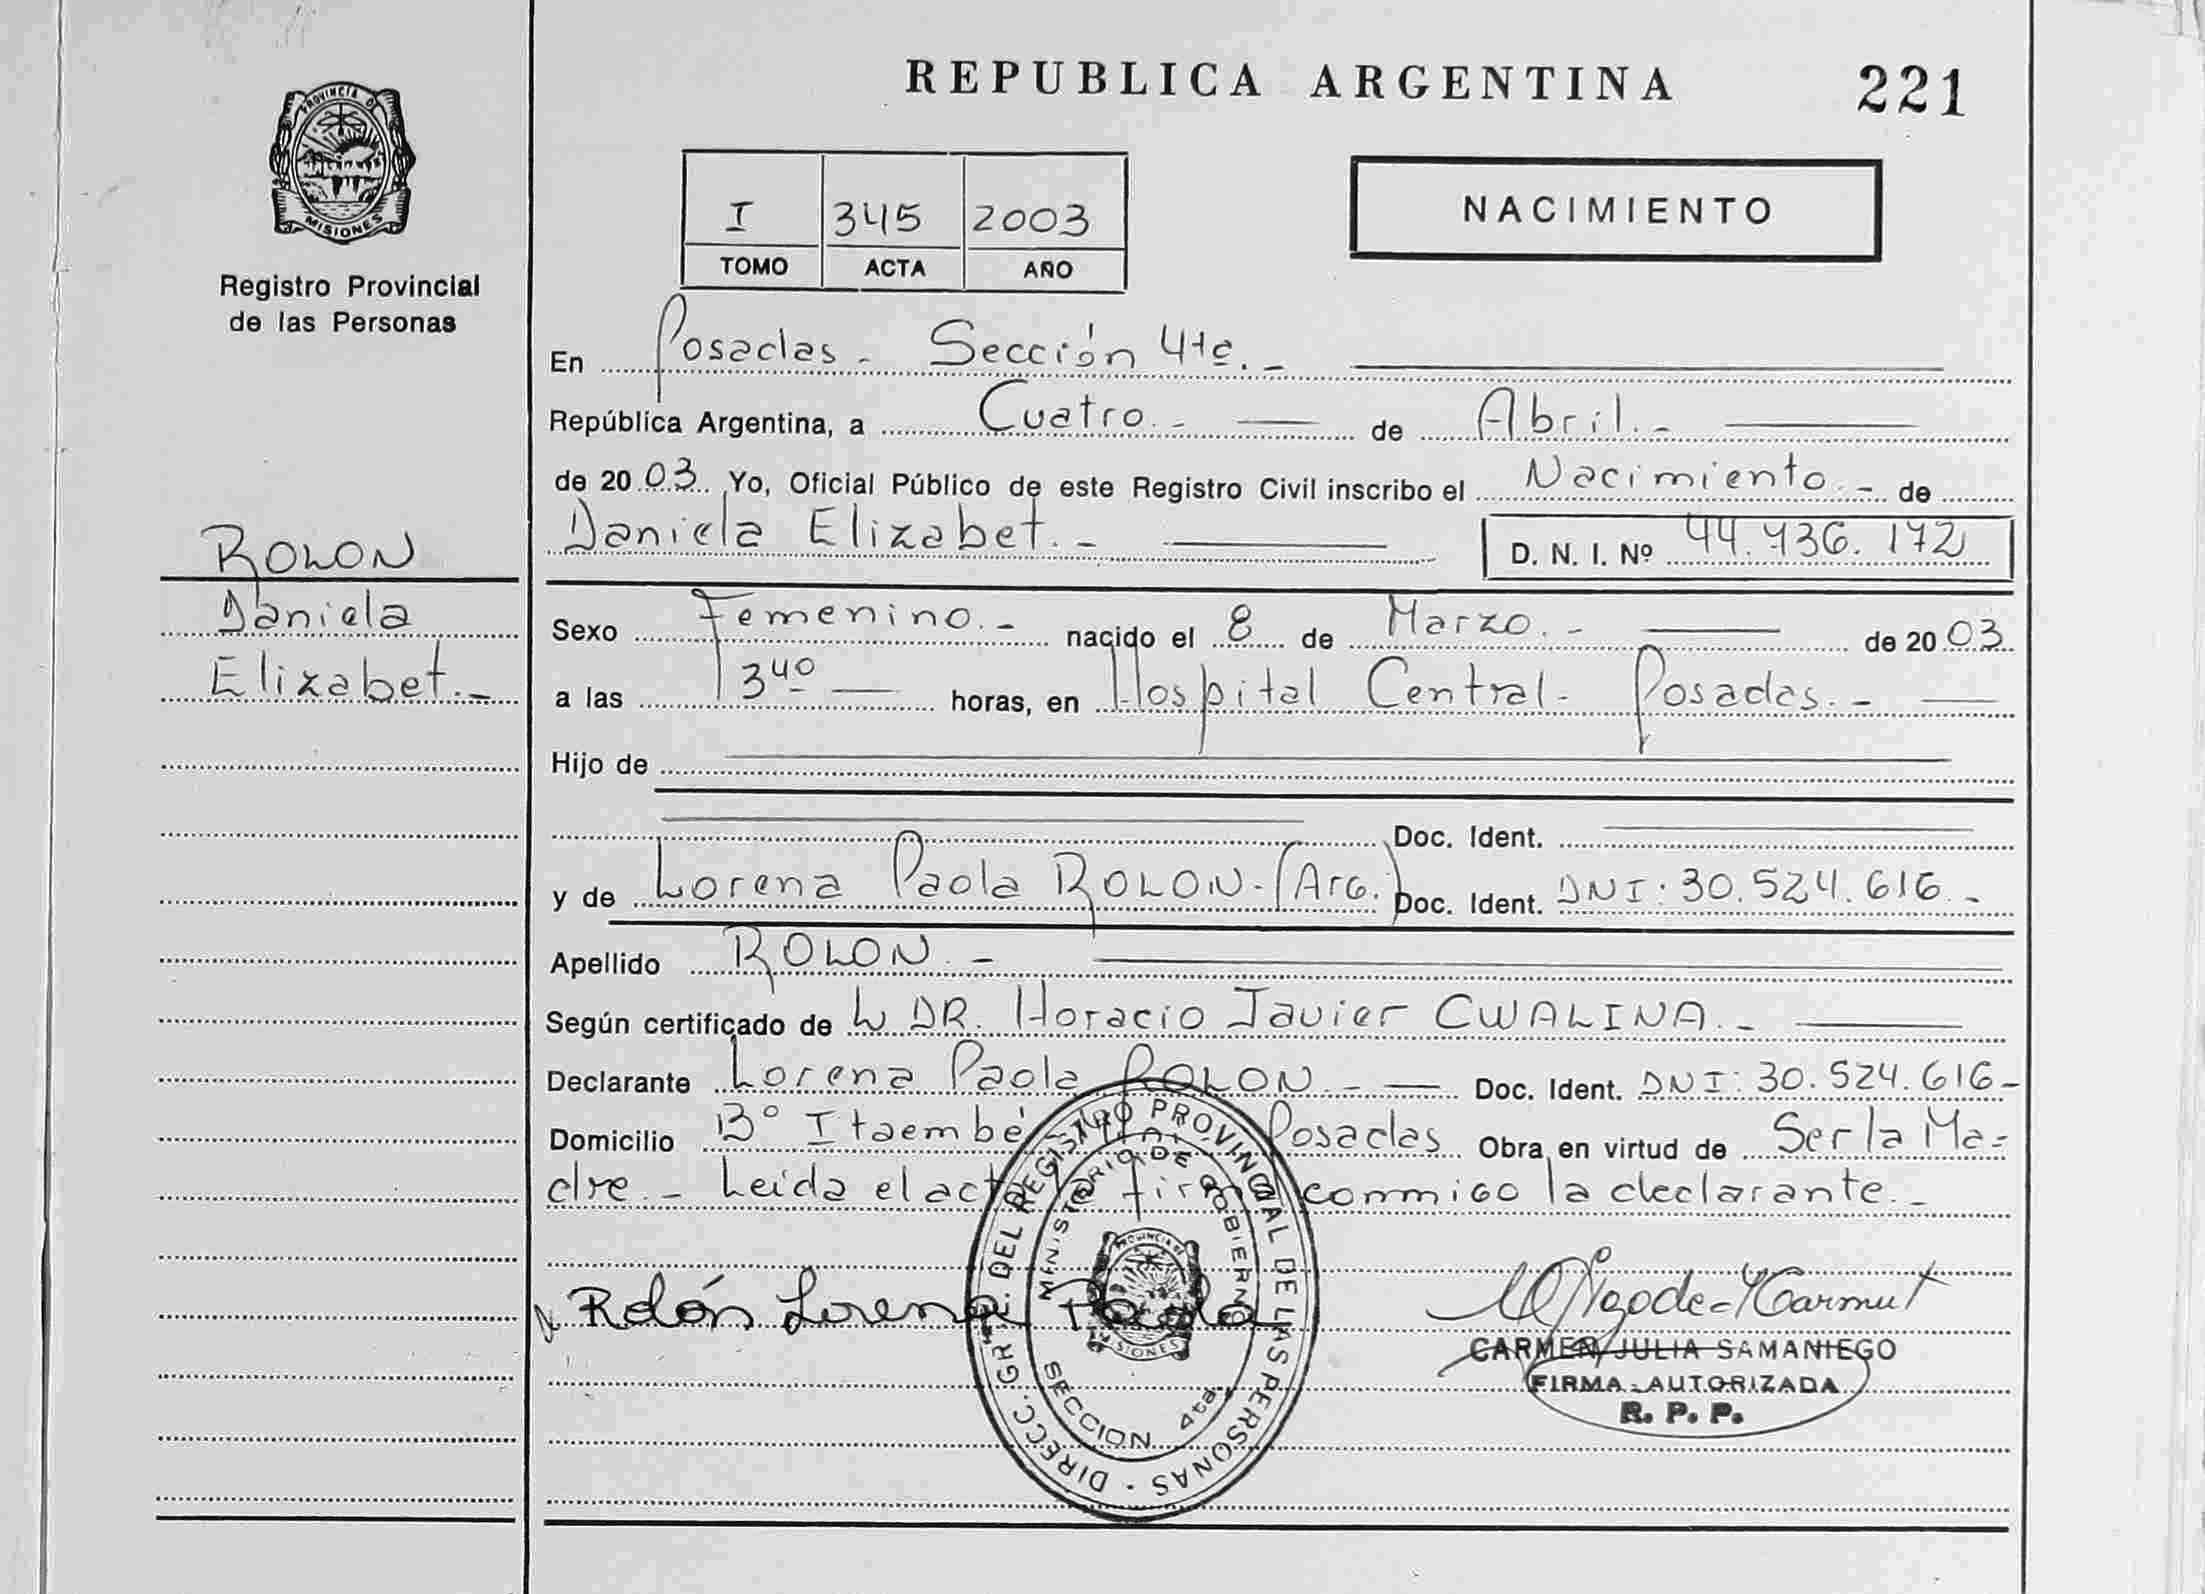 REPUBLICA ARGENTINA
221
PROVINCIA DE
MISIONES
Registro Provincial
de las Personas
I 345 2003
TOMO ACTA AÑO
NACIMIENTO
En Posadas - Sección 4ta. -
República Argentina, a Cuatro. - de Abril. -
de 2003. Yo, Oficial Público de este Registro Civil inscribo el Nacimiento. - de
Daniela Elizabet. - D. N. I. Nº 44.736.172
ROLON
Daniela
Elizabet. -
Sexo Femenino. - nacido el 8 de Marzo. - de 2003
a las 3 40 horas, en Hospital Central - Posadas. -
Hijo de
Doc. Ident.
y de Lorena Paola ROLON - (Arg.) Doc. Ident. DNI: 30.524.616. -
Apellido ROLON. -
Según certificado de DR. Horacio Javier CWALINA. -
Declarante Lorena Paola ROLON. - Doc. Ident. DNI: 30.524.616 -
Domicilio Bº Itaembé Posadas Obra en virtud de Ser la Ma=
dre. - Leída el acta firma conmigo la declarante. -
Rolón Lorena Paola
DIRECC. GRAL. DEL REGISTRO PROVINCIAL DE LAS PERSONAS
MINISTERIO DE GOBIERNO
SECCION 4ta.
CARMEN JULIA SAMANIEGO
FIRMA AUTORIZADA
R. P. P.